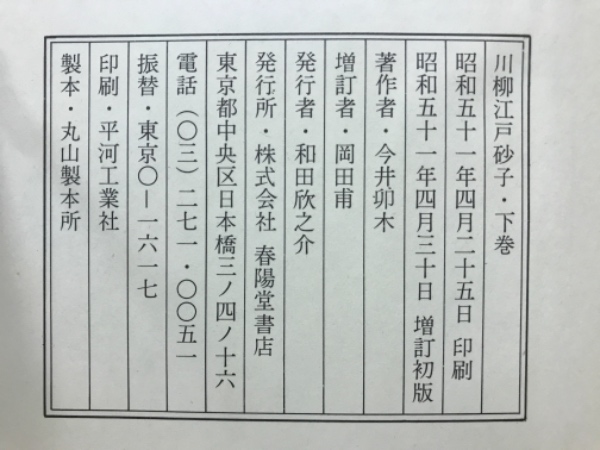 川柳江戸砂子・下巻
昭和五十一年四月二十五日 印刷
昭和五十一年四月三十日 増訂初版
著作者・今井卯木
増訂者・岡田甫
発行者・和田欣之介
発行所・株式会社 春陽堂書店
東京都中央区日本橋三ノ四ノ十六
電話(〇三)二七一・〇〇五一
振替・東京〇―一六一七
印刷・平河工業社
製本・丸山製本所